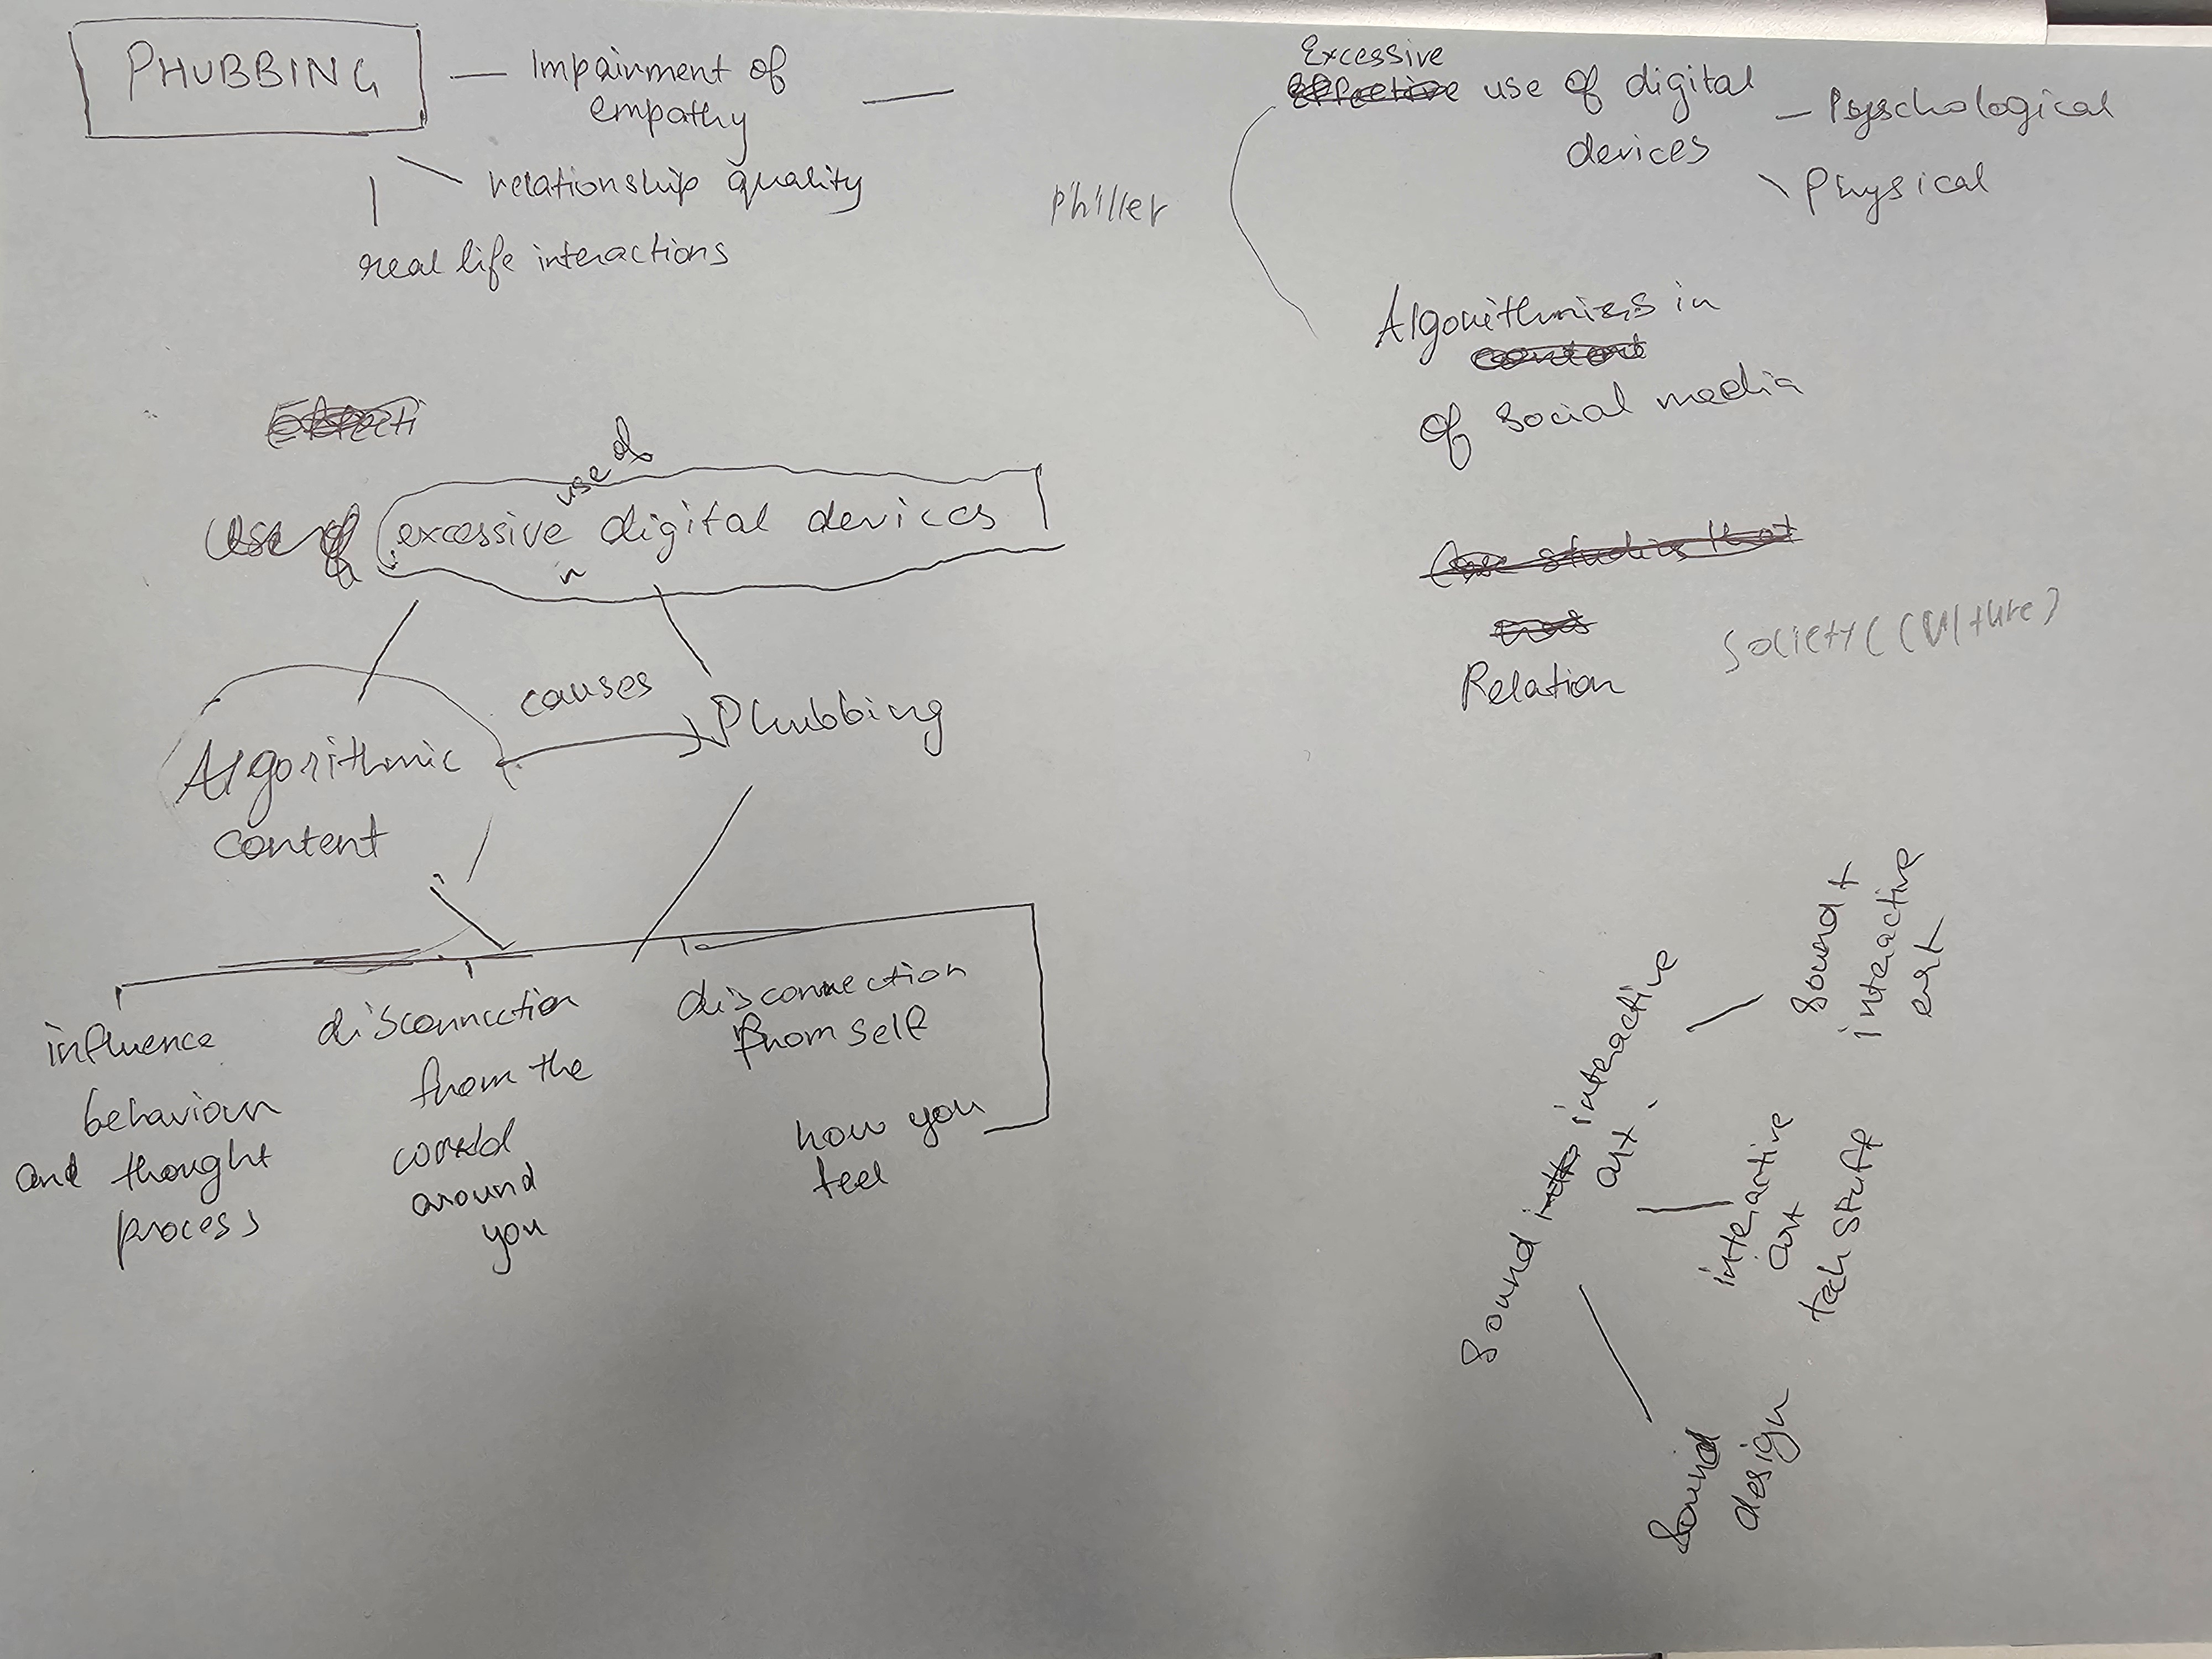 PHUBBING
Impairment of
empathy
relationship quality
real life interactions
Philler
Excessive
use of digital
devices
Psychological
Physical
Algorithmics in
of social media
Relation
Society (Culture)
use of
excessive digital devices
causes
Algorithmic
content
Phubbing
influence
behaviour
and thought
process
disconnection
from the
world
around
you
disconnection
from self
how you
feel
Sound interactive
art
Sound +
interactive
art
interactive
art
tech stuff
Sound
design